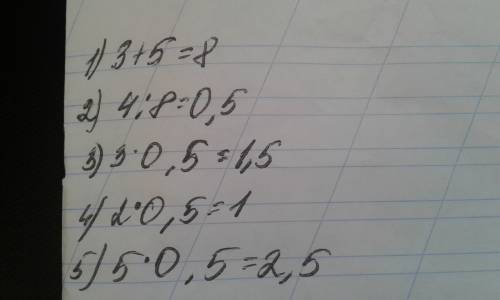 1) 3+5=8
2) 4:8=0,5
3) 3·0,5=1,5
4) 2·0,5=1
5) 5·0,5=2,5